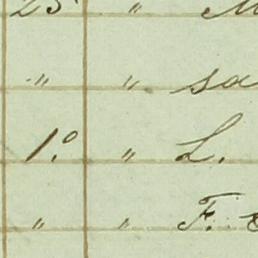 25 "
" " sa
1.º " L.
" " F.